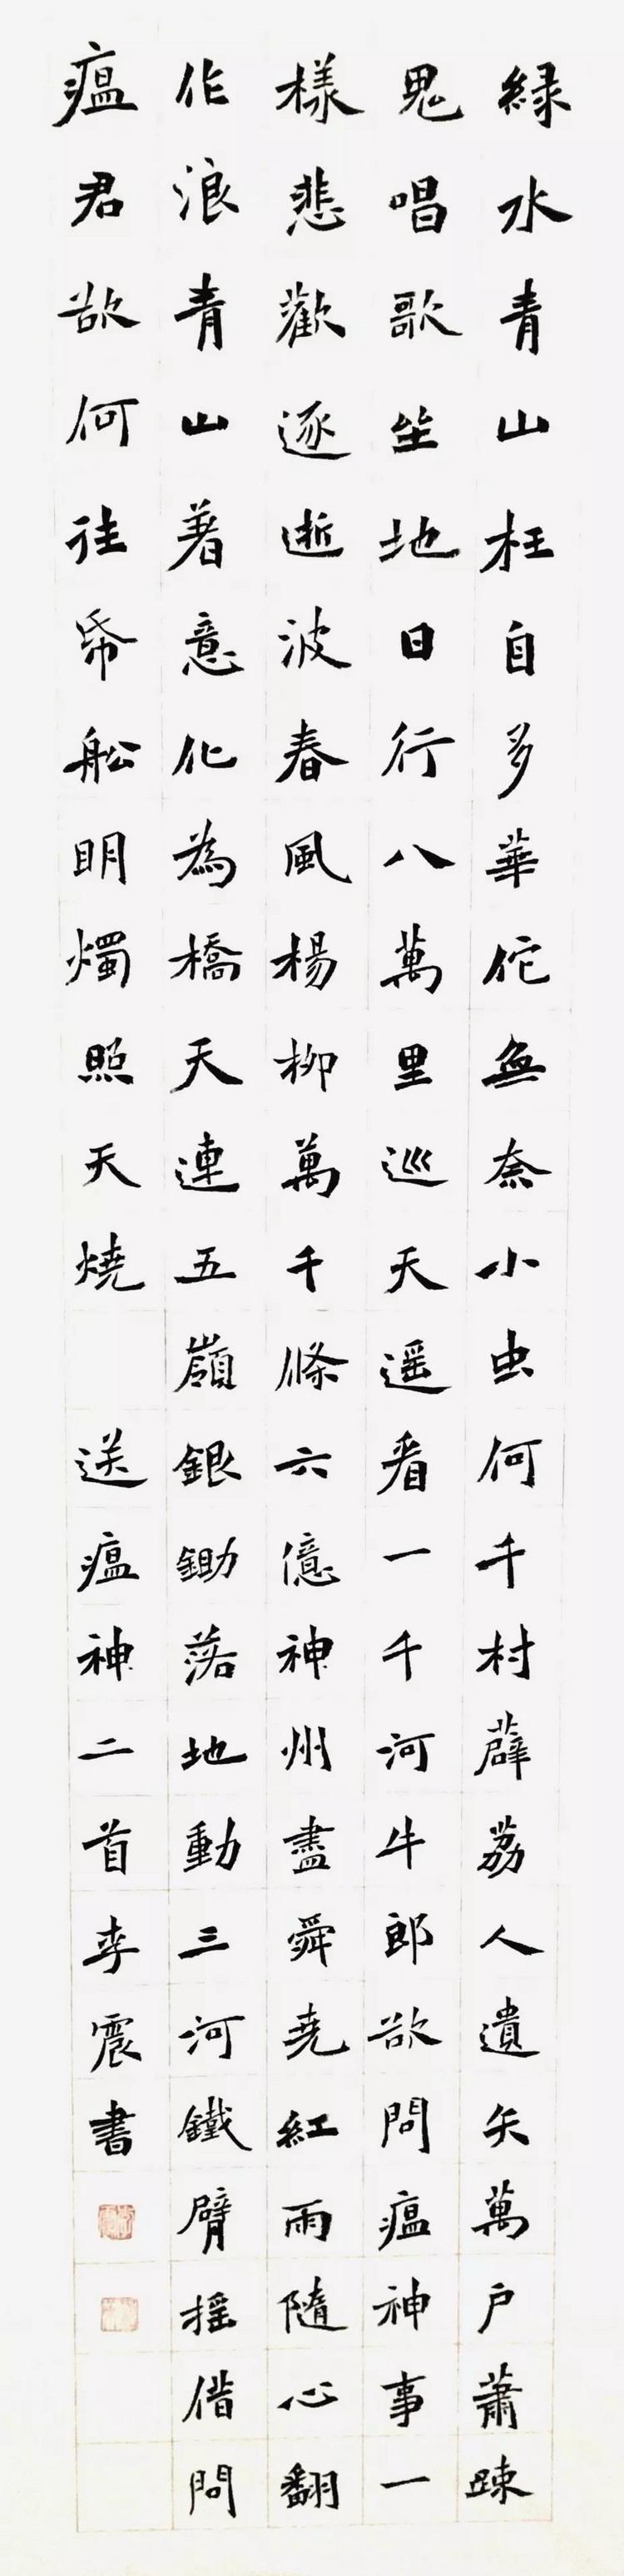 緑水青山枉自多華佗無奈小虫何千村薜荔人遺矢萬户蕭踈
鬼唱歌坐地日行八萬里巡天遥看一千河牛郎欲問瘟神事一
樣悲歡逐逝波春風楊柳萬千條六億神州盡舜尭紅雨隨心翻
作浪青山著意化為橋天連五嶺銀鋤落地動三河鐵臂摇借問
瘟君欲何往帋船明燭照天燒
送瘟神二首李震書